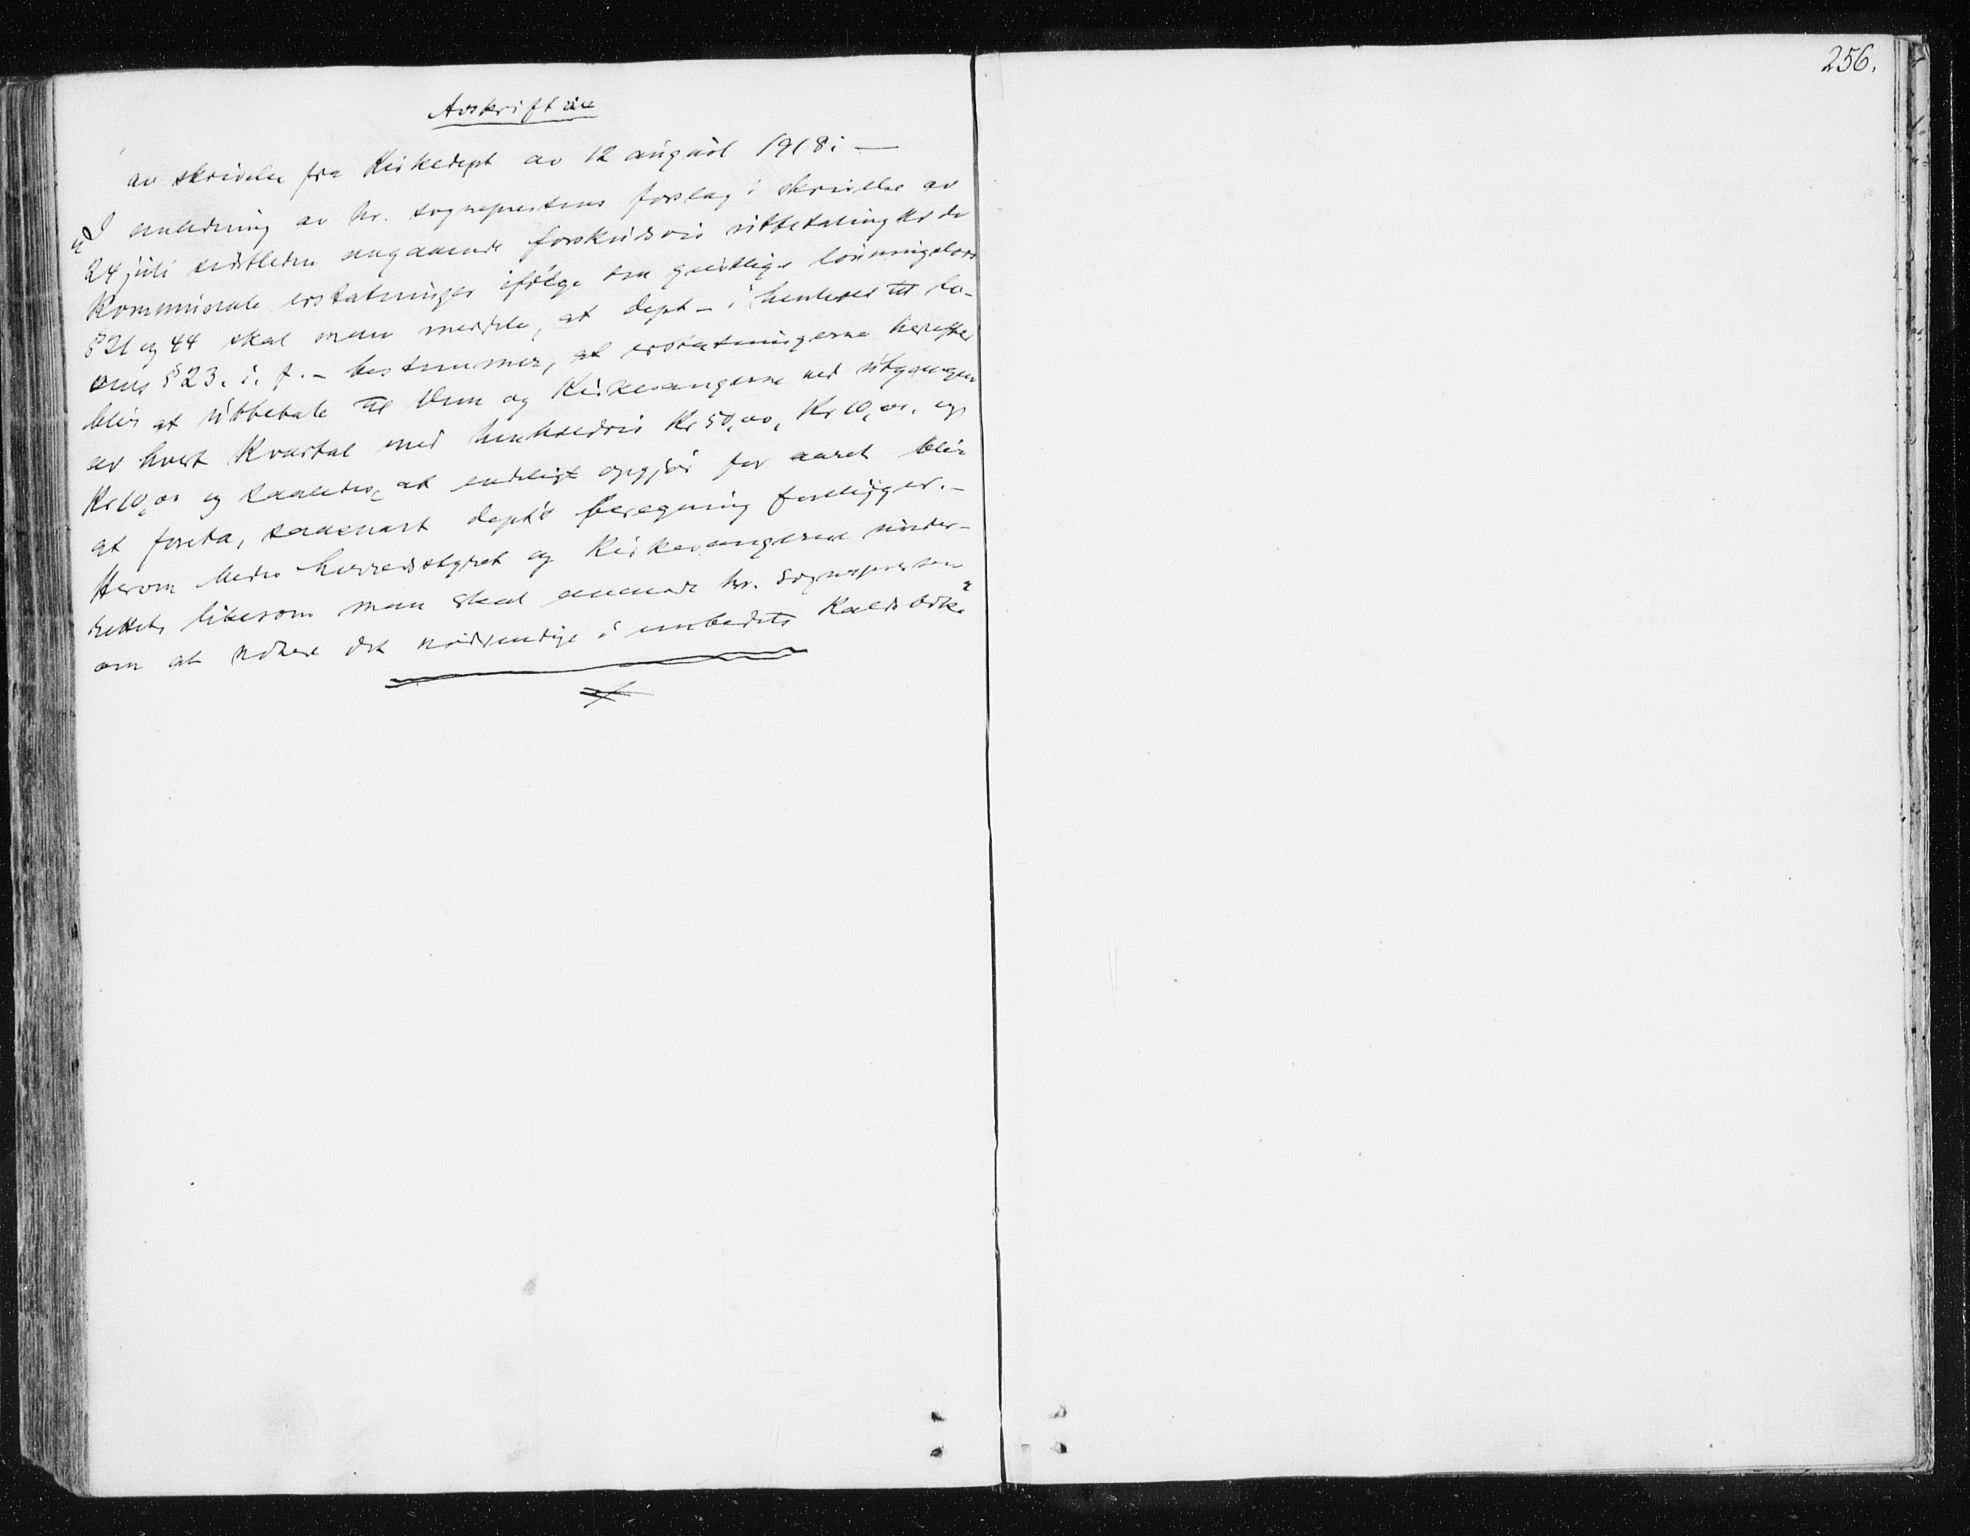 256.
Avskrift
av skrivelse fra Kirkedept av 12 august 1918: —
"I anledning av hr. sogneprestens forslag i skrivelse av
24 juli sidstleden angaaende forskudsvis utbetaling av de
kommunale erstatninger ifølge den geistlige lønningslovs
§ 21 og 44 skal man meddele, at dept — i henhold til lo-
vens § 23. i. f. — bestemmer, at erstatningerne herefter
blir at utbetale til Dem og Kirkesangerne ved utgangen
av hvert kvartal med henholdsvis Kr 50,00, Kr 10,00, og
Kr 10,00 og saaledes, at endeligt opgjør for aaret blir
at foreta, saasnart dept's beregning foreligger. —
Herom bedes herredsstyret og Kirkesangerne under-
rettet, likesom man skal anmode hr. sognepresten
om at notere det nødvendige i embedets Kaldsbok."